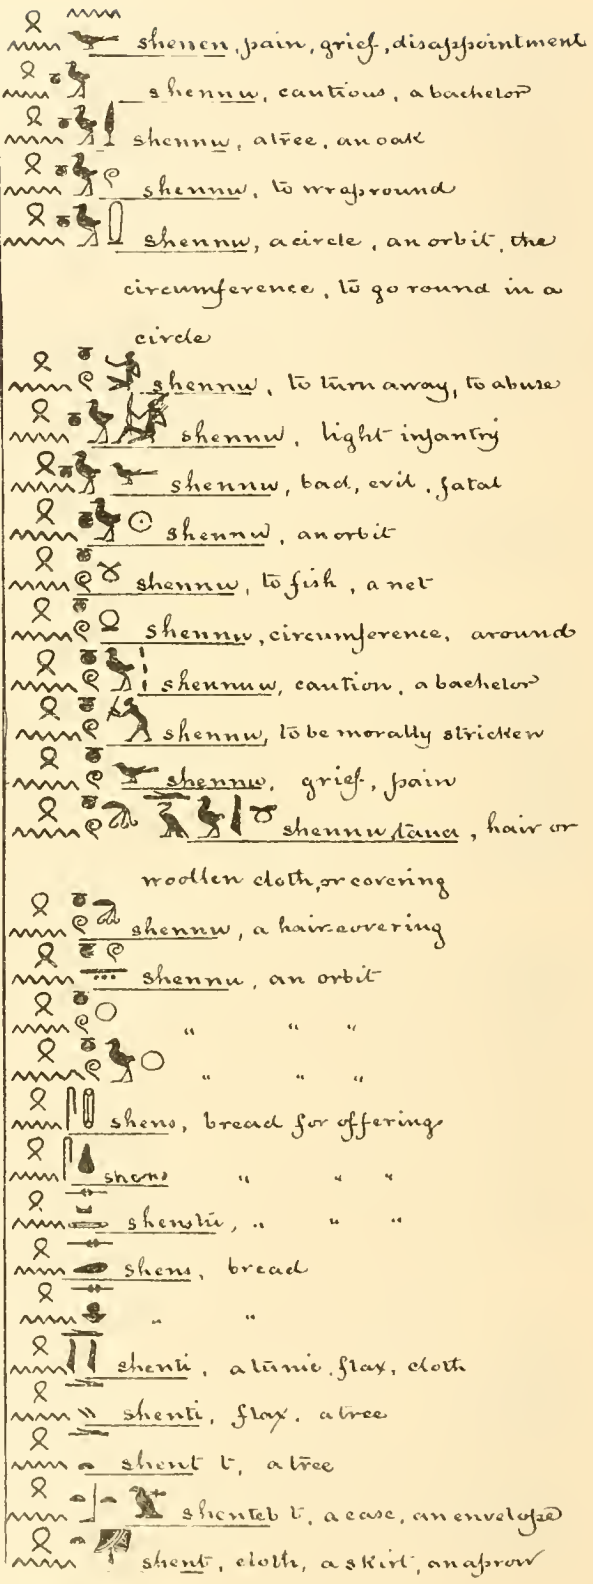 shenen, pain, grief, disappointment
shennu, cautious, a bachelor
shennu, a tree, an oak
shennu, to wrap round
shennu, a circle, an orbit, the
circumference, to go round in a
circle
shennu, to turn away, to abuse
shennu, light infantry
shennu, bad, evil, fatal
shennu, an orbit
shennu, to fish, a net
shennu, circumference, around
shennuu, caution, a bachelor
shennu, to be morally stricken
shennu, grief, pain
shennu, hair or
woollen cloth, or covering
shennu, a hair-covering
shennu, an orbit
" " "
" " "
shens, bread for offerings
shens " " "
" " "
shens, bread
" "
shenti, a tunic, flax, cloth
shenti, flax, a tree
shent t, a tree
shenteb t, a case, an envelope
shent, cloth, a skirt, an apron